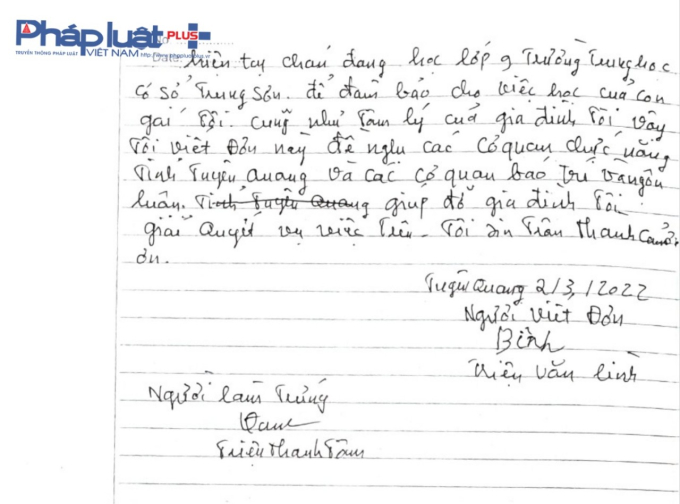 Pháp luật PLUS+
TRUYỀN THÔNG PHÁP LUẬT VIỆT NAM
Date.
hiện tay cháu đang học lớp 9 Trường Trung học
Cơ sở Trung Sơn. để đảm bảo cho việc học của con
gái Tôi. Cũng như Tâm lý của gia đình Tôi vậy
Tôi viết Đơn này đề nghị các cơ quan chức năng
Tỉnh Tuyên Quang và các cơ quan báo trí và ngôn
luận. Tỉnh Tuyên Quang giúp đỡ gia đình Tôi
giải quyết vụ việc Trên. Tôi xin Trân thành Cảm
ơn.
Tuyên Quang 2/3/2022
Người viết Đơn
Bình
Triệu văn bình
Người làm Trứng
Triệu Thanh Tâm